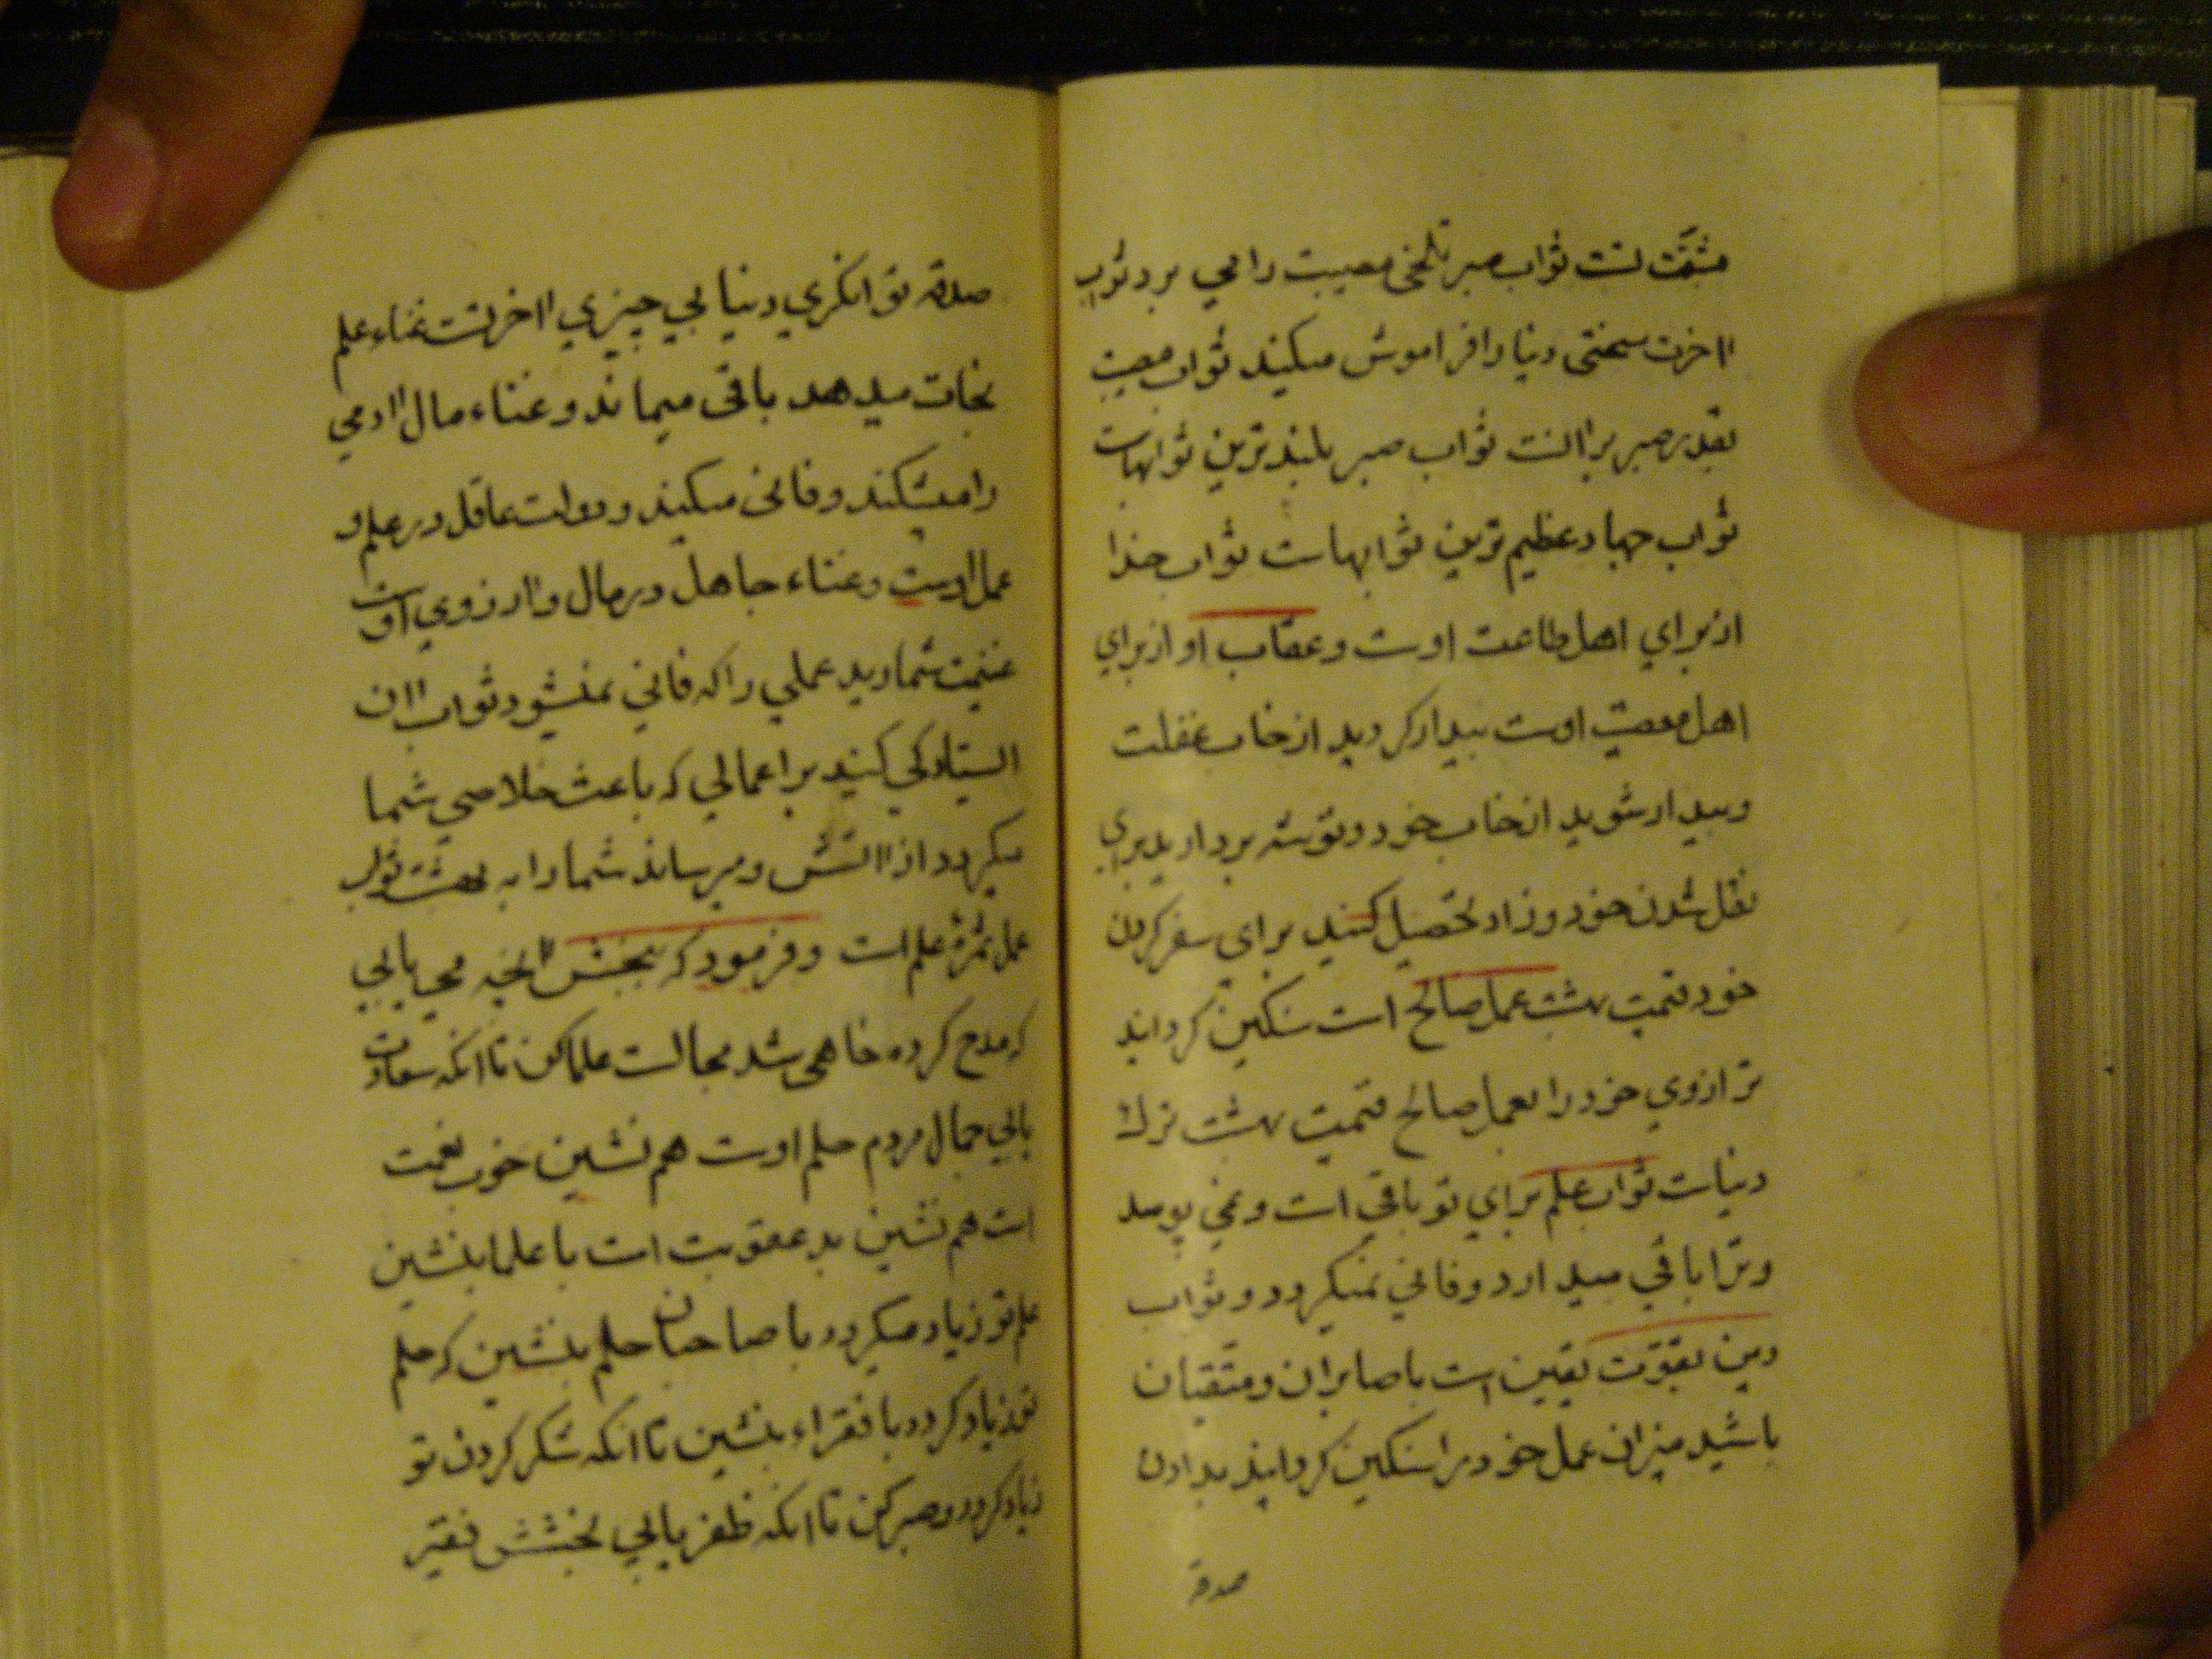 مشقت است ثواب صبر تلخی مصیبت را می برد ثواب
اخرت سختی دنیا را فراموش میکند ثواب مصیبت
بقدر صبر بر انست ثواب صبر بلند ترین ثوابهاست
ثواب جهاد عظیم ترین ثوابهاست ثواب خدا
از برای اهل طاعت اوست و عقاب او از برای
اهل معصیت اوست بیدار کردید از خاب غفلت
و بیدار شوید از خاب خود و توشه بردارید برای
نقل شدن خود و زاد تحصیل کنید برای سفر کردن
خود قیمت بهشت عمل صالح است سنکین کردانید
ترازوی خود را بعمل صالح قیمت بهشت ترک
دنیاست ثواب علم برای تو باقی است و نمی پوسد
و ترا باقی میدارد و فانی نمیکردد و ثواب
دین بقوّت یقین است با صابران و متقیان
باشید میزان عمل خود را سنکین کردانید بدادن
صدقه
صدقه توانکری دنیا بی چیزی اخرتست غناء علم
نجات میدهد باقی میماند و غناء مال ادمی
را میشکند و فانی میکند و دولت عاقل در علم و
عمل اوست و غناء جاهل در مال و ارزوی اوست
غنیمت شمارید عملی را که فانی نمیشود ثواب ان
ایستادکی کنید بر اعمالی که باعث خلاصی شما
میکردد از اتش و میرساند شما را به بهشت ثواب
عمل ثمرهٔ علم است و فرمود که ببخش انچه می یابی
که مدح کرده خاهی شد مجالست علما کن تا انکه سعادت
یابی جمال مردم حلم اوست هم نشین خوب نعمت
است هم نشین بد عقوبت است با علما بنشین
علم تو زیاد میکردد با صاحبان حلم بنشین که حلم
تو زیاد کردد با فقراء بنشین تا انکه شکر کردن تو
زیاد کردد و صبر کن تا انکه ظفر یابی بخشش فقیر